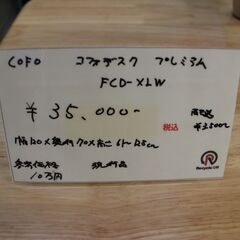 COFO コフォデスク プレミアム
FCD-XLW
¥35,000-
税込
幅120×奥行70×高さ61~125cm
参考価格 現状品
10万円
Recycle